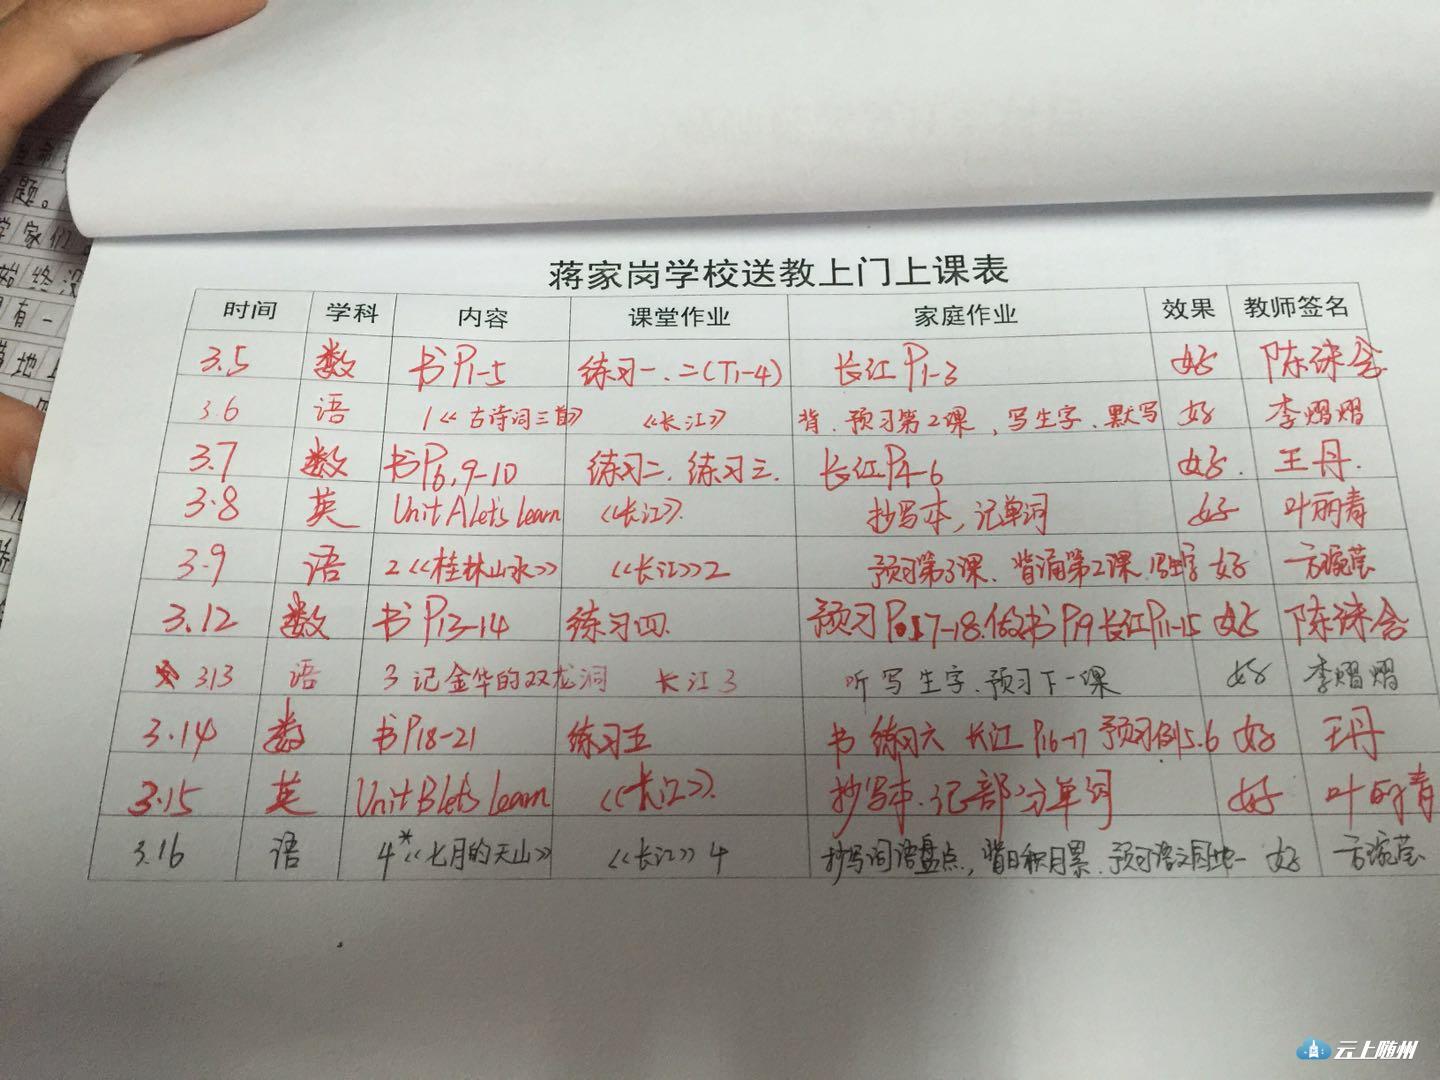 题。
学家们。
始终没
有一
蒋家岗学校送教上门上课表
时间 学科 内容 课堂作业 家庭作业 效果 教师签名
3.5 数 书P1-5 练习一、二(T1-4) 长江P1-3 好
3.6 语 1《古诗词三首》 《长江》 背、预习第2课,写生字、默写 好 李熠熠
3.7 数 书P6,9-10 练习二、练习三. 长江P4-6 好. 王丹.
3.8 英 Unit A let's learn 《长江》. 抄写本,记单词 好 叶丽青
3.9 语 2《桂林山水》 《长江》2 预习第3课、背诵第2课、写生字 好 方琬莹
3.12 数 书P13-14 练习四. 预习P17-18.做书P19 长江P11-15 好
3.13 语 3 记金华的双龙洞 长江3 听写生字.预习下一课 好 李熠熠
3.14 数 书P18-21 练习五 书 练习六 长江 P16-17 预习例5.6 好 王丹
3.15 英 Unit B let's learn 《长江》. 抄写本.记部分单词 好 叶丽青
3.16 语 4*《七月的天山》 《长江》4 抄写词语盘点,背日积月累.预习语文园地一 好 方琬莹
云上随州